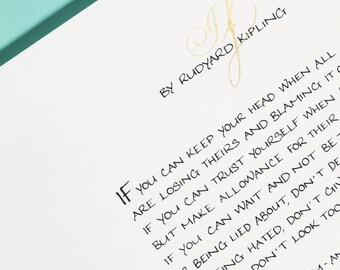 If
BY RUDYARD KIPLING
IF YOU CAN KEEP YOUR HEAD WHEN ALL
ARE LOSING THEIRS AND BLAMING IT O
IF YOU CAN TRUST YOURSELF WHEN
BUT MAKE ALLOWANCE FOR THEIR
IF YOU CAN WAIT AND NOT BE T
BEING LIED ABOUT, DON'T DE
BEING HATED, DON'T GIV
DON'T LOOK TOO